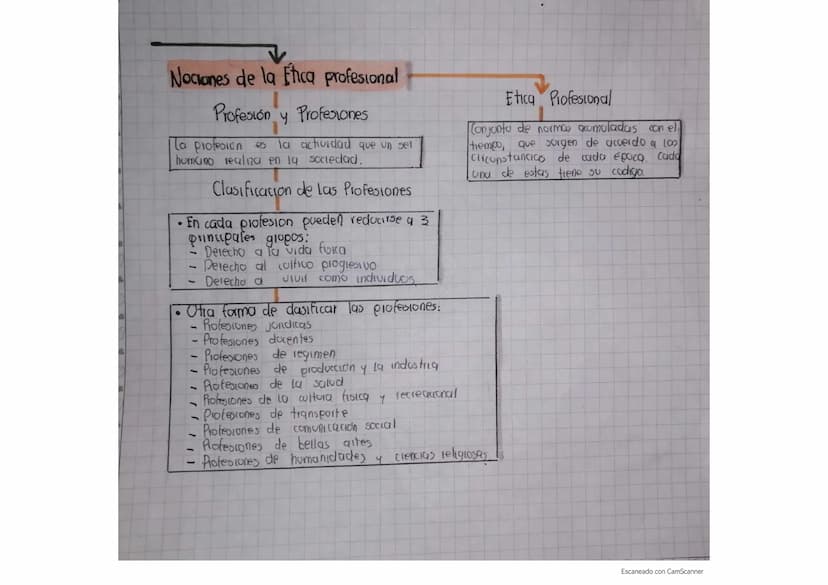 Nociones de la Ética profesional
Profesión y Profesiones
La profesion es la actividad que un ser
humano realiza en la sociedad.
Clasificacion de las Profesiones
• En cada profesion pueden reducirse a 3
principales grupos:
- Derecho a la vida fisica
- Derecho al cultivo progresivo
- Derecho a vivir como individuos
• Otra forma de clasificar las profesiones:
- Profesiones juridicas
- Profesiones docentes
- Profesiones de regimen
- Profesiones de producción y la industria
- Profesiones de la salud
- Profesiones de la cultura fisica y recreacional
- Profesiones de transporte
- Profesiones de comunicacion social
- Profesiones de bellas artes
- Profesiones de humanidades y ciencias religiosas
Etica Profesional
Conjunto de normas acumuladas con el
tiempo, que surgen de acuerdo a las
circunstancias de cada época. Cada
una de estas tiene su codigo.
Escaneado con CamScanner